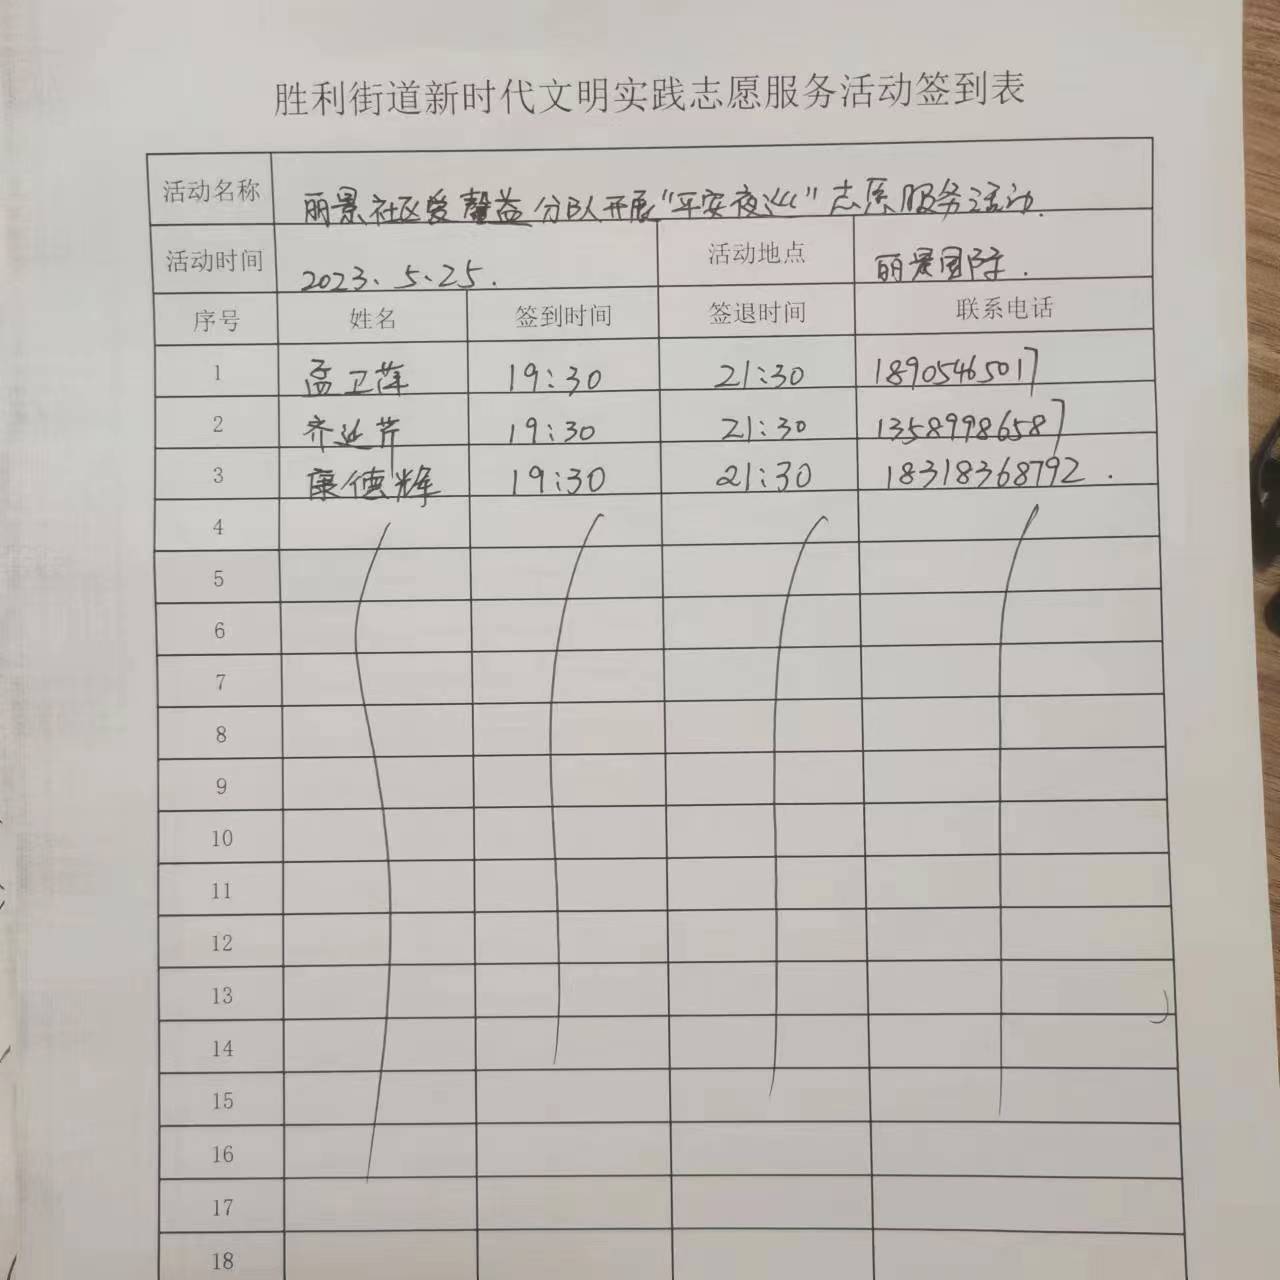 胜利街道新时代文明实践志愿服务活动签到表
活动名称 丽景社区爱馨益分队开展"平安夜巡"志愿服务活动.
活动时间 2023、5、25. 活动地点 丽景国际.
序号 姓名 签到时间 签退时间 联系电话
1 孟卫萍 19:30 21:30 18905465017
2 齐延芹 19:30 21:30 13589986587
3 康德辉 19:30 21:30 18318368792.
4
5
6
7
8
9
10
11
12
13
14
15
16
17
18